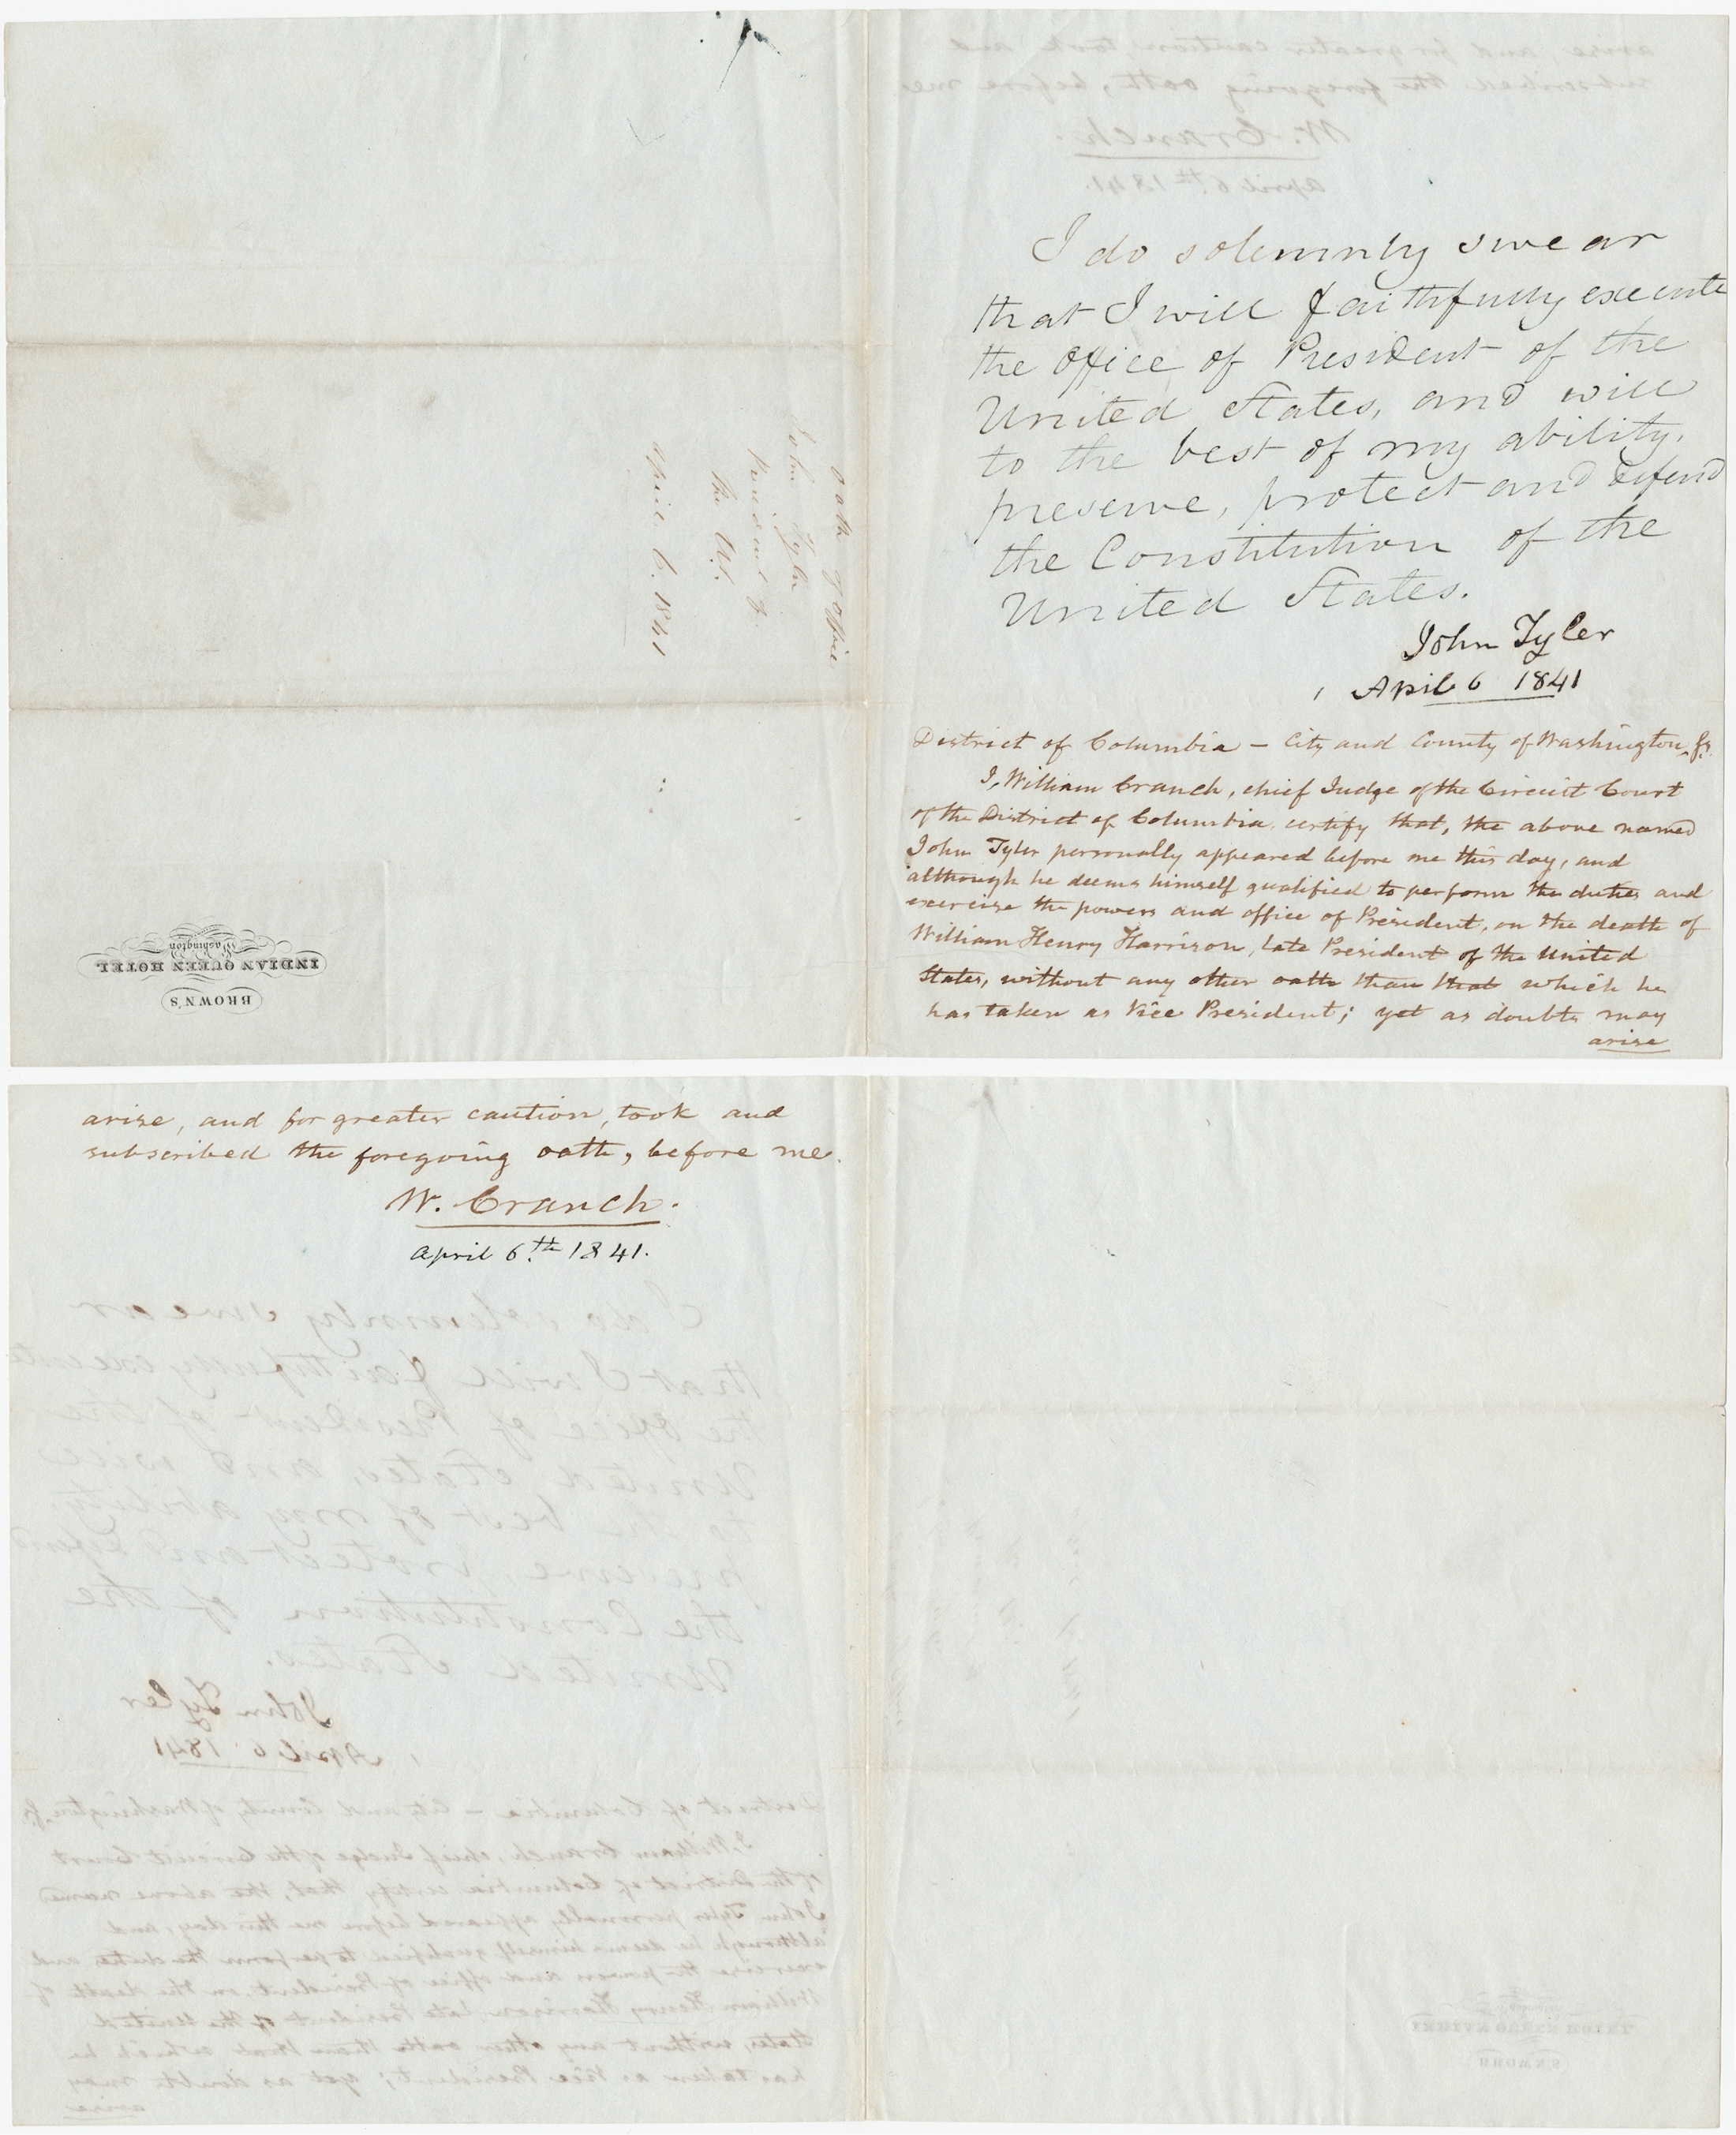 oath of office
John Tyler
President of
the U.S.
April 6. 1841
BROWN'S
INDIAN QUEEN HOTEL
Washington
I do solemnly swear
that I will faithfully execute
the office of President of the
United States, and will
to the best of my ability,
preserve, protect and defend
the Constitution of the
United States.
John Tyler
April 6 1841
District of Columbia — City and County of Washington, ss.
I, William Cranch, chief Judge of the Circuit Court
of the District of Columbia, certify that, the above named
John Tyler personally appeared before me this day, and
although he deems himself qualified to perform the duties and
exercise the powers and office of President, on the death of
William Henry Harrison, late President of the United
States, without any other oath than that which he
has taken as Vice President; yet as doubts may
arise
arise, and for greater caution, took and
subscribed the foregoing oath, before me.
W. Cranch.
April 6th 1841.